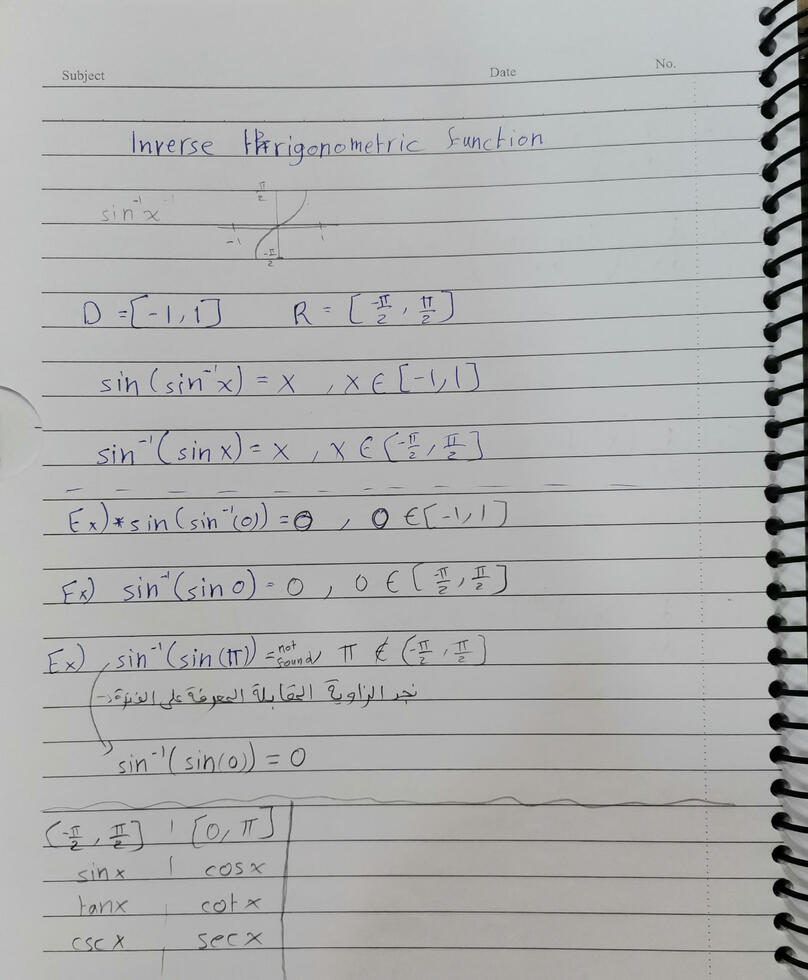 Subject
Date
No.
Inverse trigonometric function
sin⁻¹x
π/2
-1
1
-π/2
D = [-1,1] R = [-π/2, π/2]
sin(sin⁻¹x) = x , x ∈ [-1,1]
sin⁻¹(sin x) = x , x ∈ [-π/2, π/2]
Ex) * sin(sin⁻¹(0)) = 0 , 0 ∈ [-1,1]
Ex) sin⁻¹(sin 0) = 0 , 0 ∈ [-π/2, π/2]
Ex) sin⁻¹(sin(π)) = not found π ∉ [-π/2, π/2]
نجد الزاوية المقابلة المعرفة على الفترة:-
sin⁻¹(sin(0)) = 0
[-π/2, π/2] | [0, π]
sin x | cos x
tan x | cot x
csc x | sec x